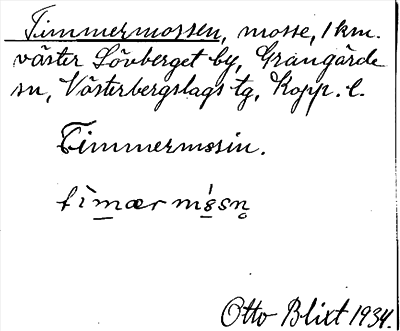 Timmermossen, mosse, 1 km.
väster Lövberget by, Grangärde
sn, Västerbergslags tg, Kopp. l.
Timmermosin.
Otto Blixt 1934.